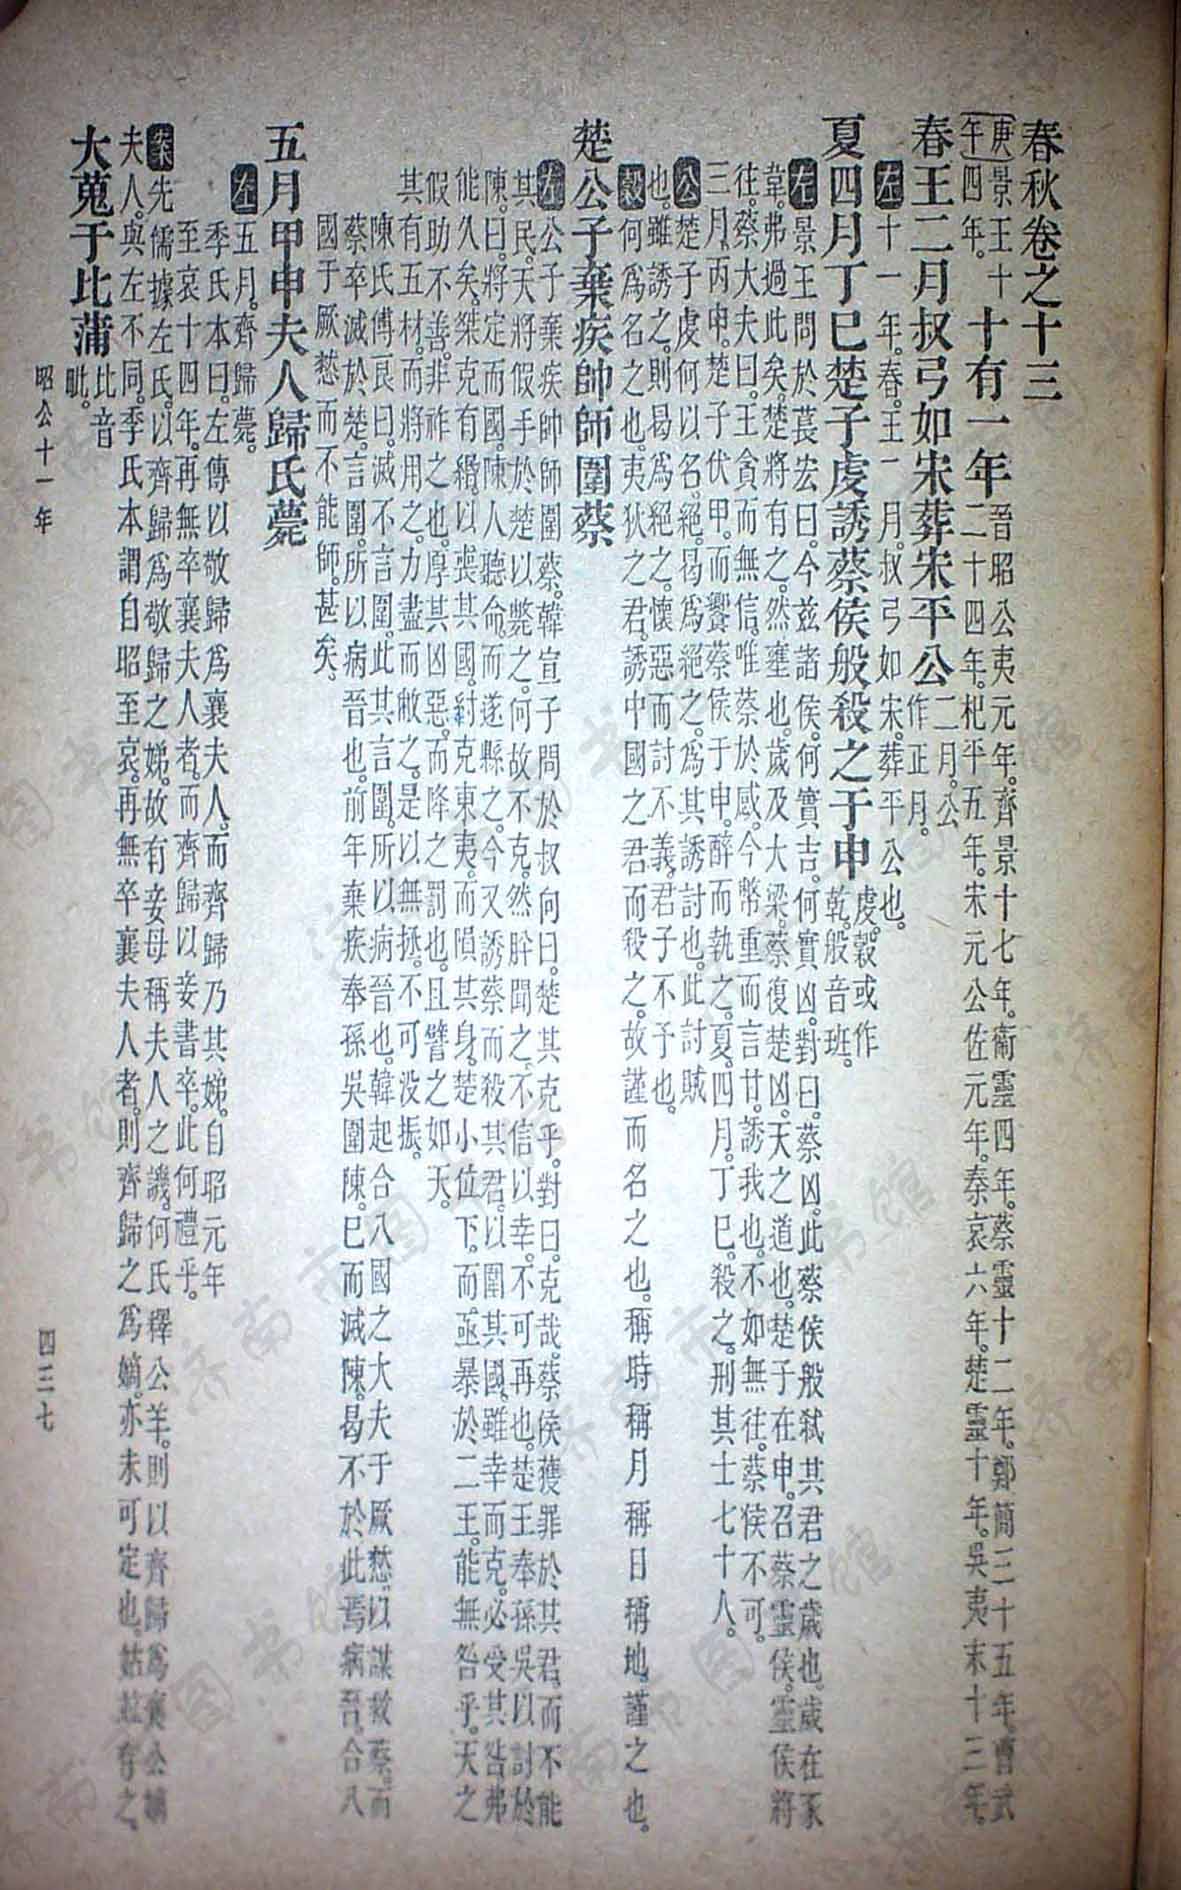 春秋卷之十三
庚午 景王十四年。 十有一年 晉昭公夷元年。齊景十七年。衛靈四年。蔡靈十二年。鄭簡三十五年。曹武二十四年。杞平五年。宋元公佐元年。秦哀六年。楚靈十年。吳夷末十三年。
春王二月叔弓如宋葬宋平公 二月。公作正月。
左 十一年。春。王二月。叔弓如宋。葬平公也。
夏四月丁巳楚子虔誘蔡侯般殺之于申 虔。穀或作乾。般音班。
左 景王問於萇宏曰。今兹諸侯。何實吉。何實凶。對曰。蔡凶。此蔡侯般弒其君之歲也。歲在豕
韋。弗過此矣。楚將有之。然壅也。歲及大梁。蔡復楚凶。天之道也。楚子在申。召蔡靈侯。靈侯將
往。蔡大夫曰。王貪而無信。唯蔡於感。今幣重而言甘。誘我也。不如無往。蔡侯不可。
三月。丙申。楚子伏甲。而饗蔡侯于申。醉而執之。夏。四月。丁巳。殺之。刑其士七十人。
公 楚子虔何以名。絕。曷爲絕之。爲其誘討也。此討賊
也。雖誘之。則曷爲絕之。懷惡而討不義。君子不予也。
穀 何爲名之也。夷狄之君。誘中國之君而殺之。故謹而名之也。稱時稱月稱日稱地。謹之也。
楚公子棄疾帥師圍蔡
左 公子棄疾帥師圍蔡。韓宣子問於叔向曰。楚其克乎。對曰。克哉。蔡侯獲罪於其君。而不能
其民。天將假手於楚以斃之。何故不克。然肸聞之。不信以幸。不可再也。楚王奉孫吳以討於
陳。曰。將定而國。陳人聽命。而遂縣之。今又誘蔡而殺其君。以圍其國。雖幸而克。必受其咎。弗
能久矣。桀克有緡。以喪其國。紂克東夷。而隕其身。楚小位下。而亟暴於二王。能無咎乎。天之
假助不善。非祚之也。厚其凶惡。而降之罰也。且譬之如天。
其有五材。而將用之。力盡而敝之。是以無拯。不可没振。
陳氏傅良曰。滅不言圍。此其言圍。所以病晉也。韓起合八國之大夫于厥憖。以謀救蔡。而
蔡卒滅於楚。言圍。所以病晉也。前年棄疾奉孫吳圍陳。已而滅陳。曷不於此焉病晉。合八
國于厥憖而不能師。甚矣。
五月甲申夫人歸氏薨
左 五月。齊歸薨。
季氏本曰。左傳以敬歸爲襄夫人。而齊歸乃其娣。自昭元年
至哀十四年。再無卒襄夫人者。而齊歸以妾書卒。此何禮乎。
案 先儒據左氏。以齊歸爲敬歸之娣。故有妾母稱夫人之譏。何氏釋公羊。則以齊歸爲襄公嫡
夫人。與左不同。季氏本謂自昭至哀。再無卒襄夫人者。則齊歸之爲嫡。亦未可定也。姑並存之。
大蒐于比蒲 比音毗。
昭公十一年
四三七